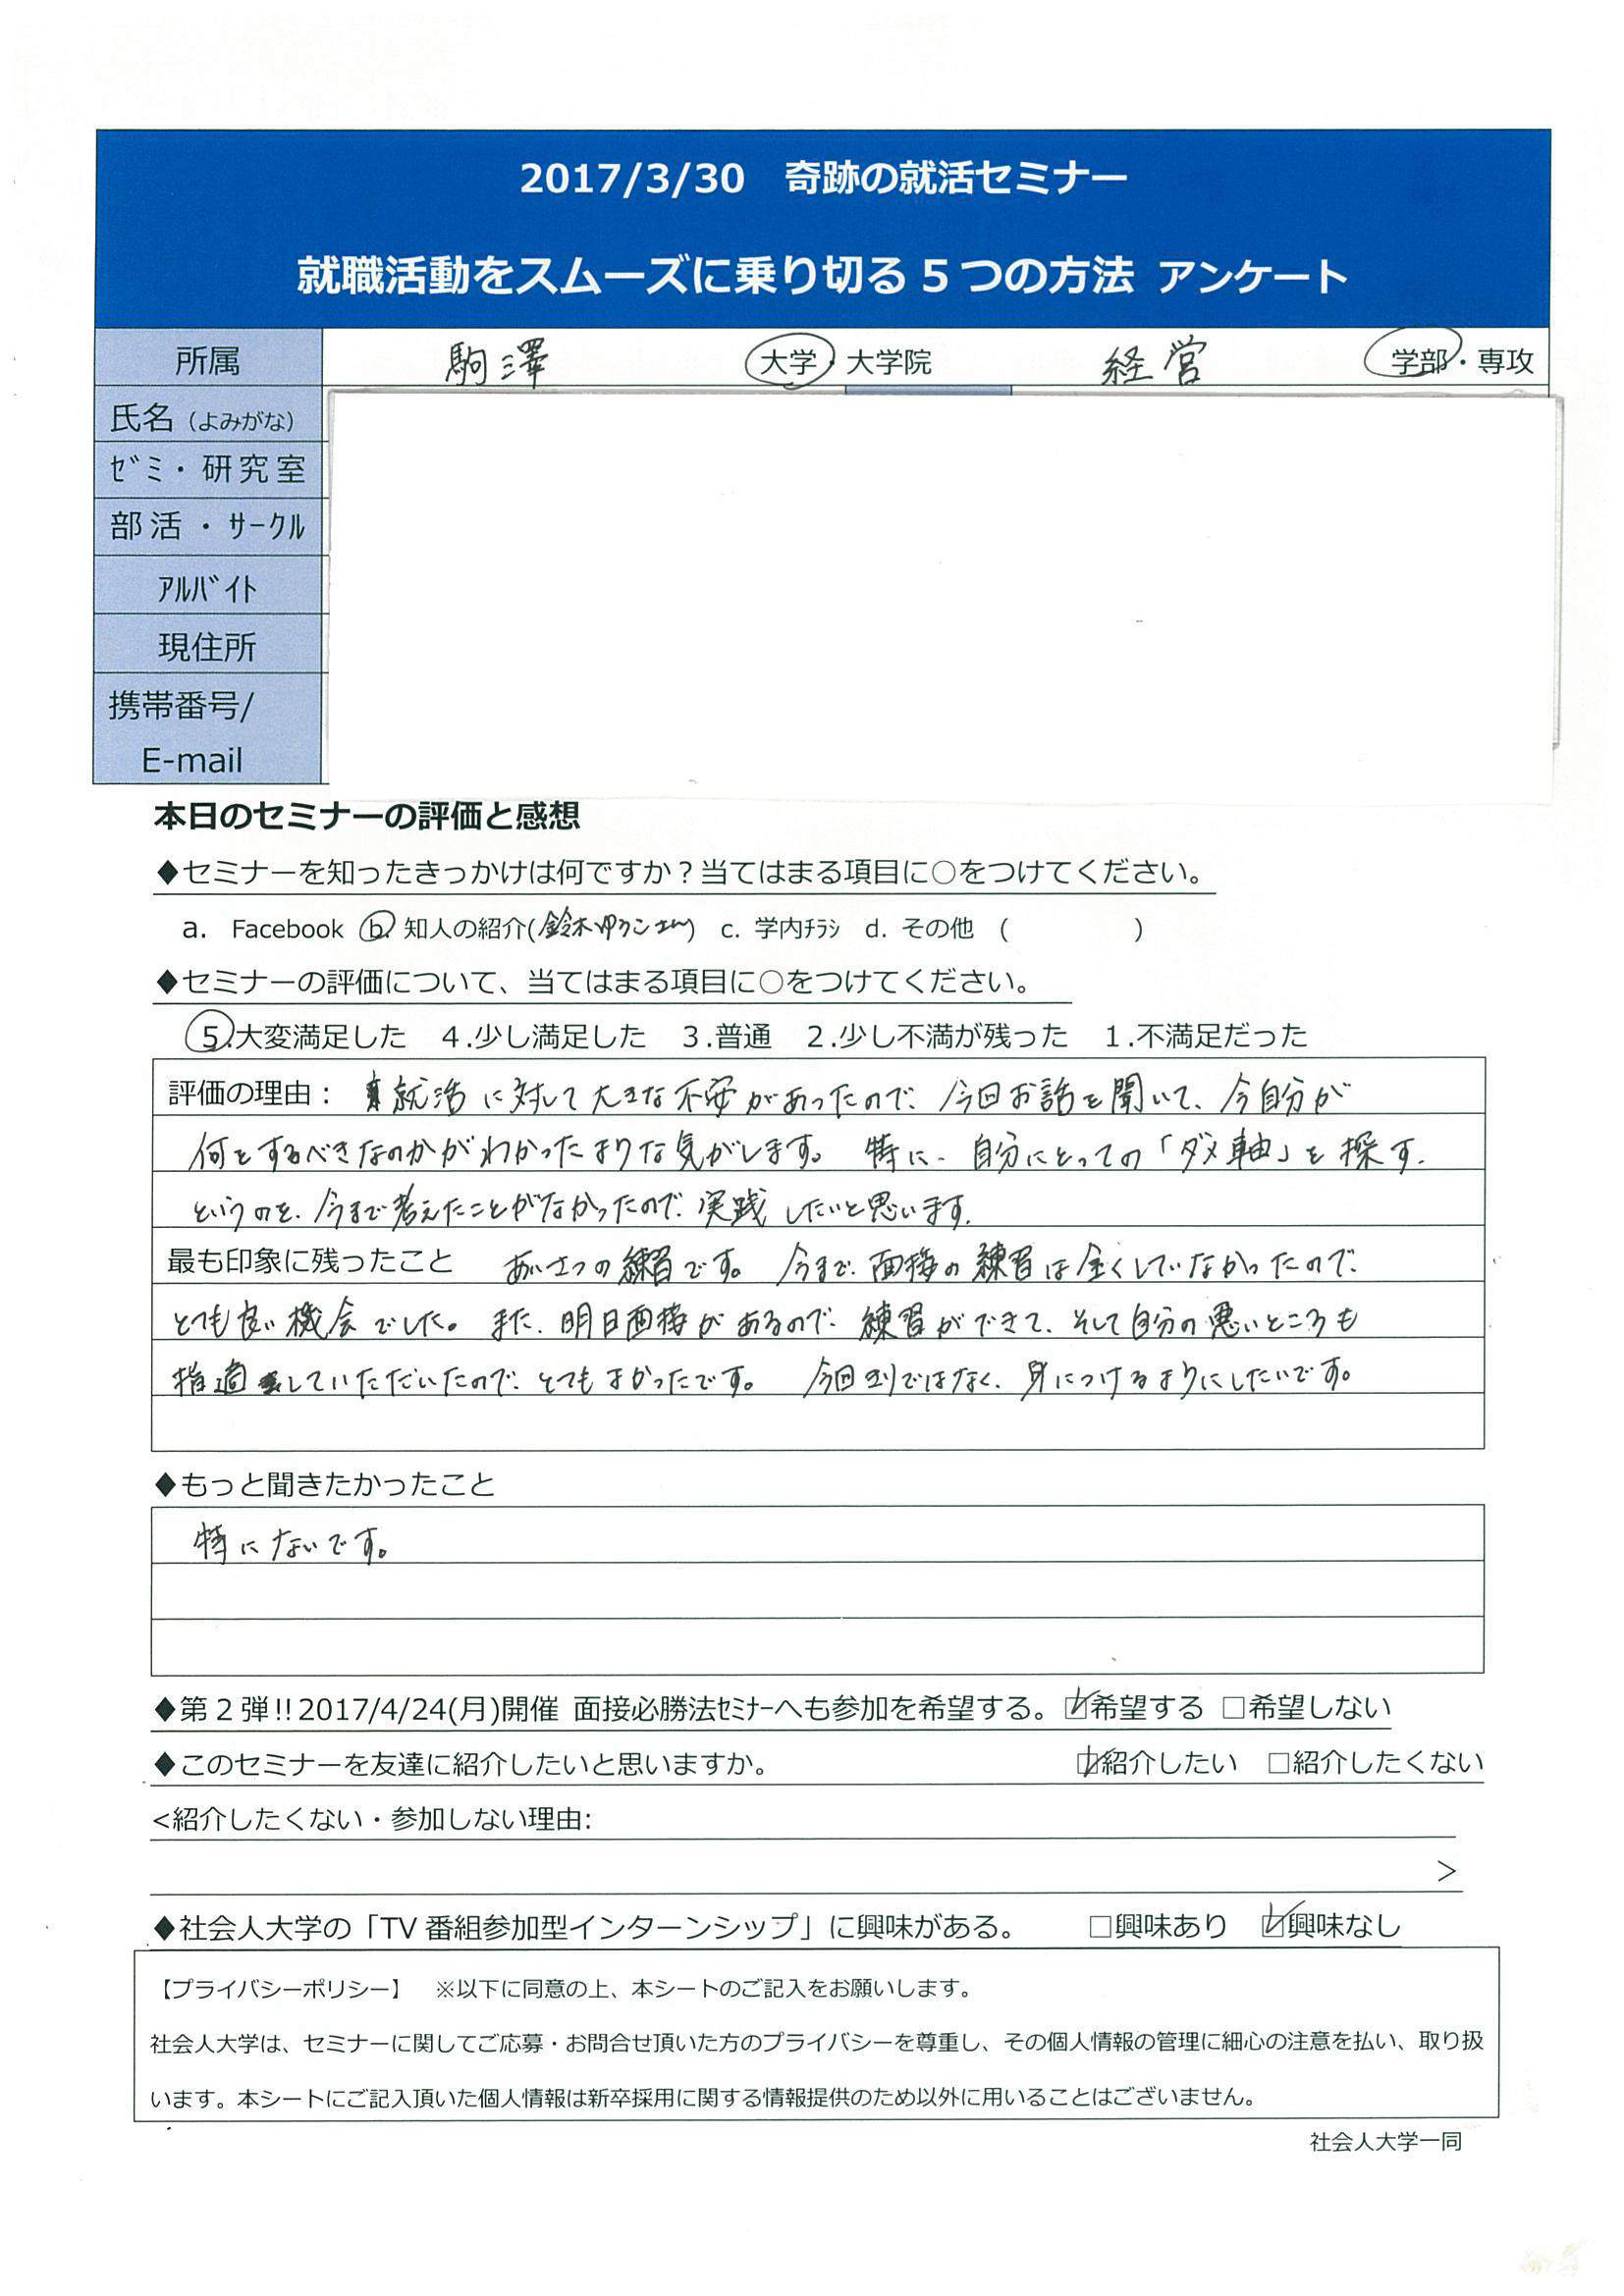 2017/3/30　奇跡の就活セミナー
就職活動をスムーズに乗り切る５つの方法 アンケート
所属 駒澤 大学・大学院 経営 学部・専攻
氏名（よみがな）
ｾﾞﾐ・研究室
部活・ｻｰｸﾙ
ｱﾙﾊﾞｲﾄ
現住所
携帯番号/
E-mail
本日のセミナーの評価と感想
◆セミナーを知ったきっかけは何ですか？当てはまる項目に○をつけてください。
a. Facebook b. 知人の紹介(鈴木ゆうこさん) c. 学内ﾁﾗｼ d. その他 ( )
◆セミナーの評価について、当てはまる項目に○をつけてください。
5.大変満足した 4.少し満足した 3.普通 2.少し不満が残った 1.不満足だった
評価の理由： 就活に対して大きな不安があったので、今回お話を聞いて、今自分が
何をするべきなのかがわかったような気がします。特に、自分にとっての「ダメ軸」を探す、
というのを、今まで考えたことがなかったので、実践したいと思います。
最も印象に残ったこと あいさつの練習です。今まで、面接の練習は全くしていなかったので、
とても良い機会でした。また、明日面接があるので、練習ができて、そして自分の悪いところも
指適していただいたので、とてもよかったです。今回限りではなく、身につけるようにしたいです。
◆もっと聞きたかったこと
特にないです。
◆第２弾!!2017/4/24(月)開催 面接必勝法ｾﾐﾅｰへも参加を希望する。☑希望する □希望しない
◆このセミナーを友達に紹介したいと思いますか。 ☑紹介したい □紹介したくない
<紹介したくない・参加しない理由:
>
◆社会人大学の「TV番組参加型インターンシップ」に興味がある。 □興味あり ☑興味なし
【プライバシーポリシー】 ※以下に同意の上、本シートのご記入をお願いします。
社会人大学は、セミナーに関してご応募・お問合せ頂いた方のプライバシーを尊重し、その個人情報の管理に細心の注意を払い、取り扱
います。本シートにご記入頂いた個人情報は新卒採用に関する情報提供のため以外に用いることはございません。
社会人大学一同